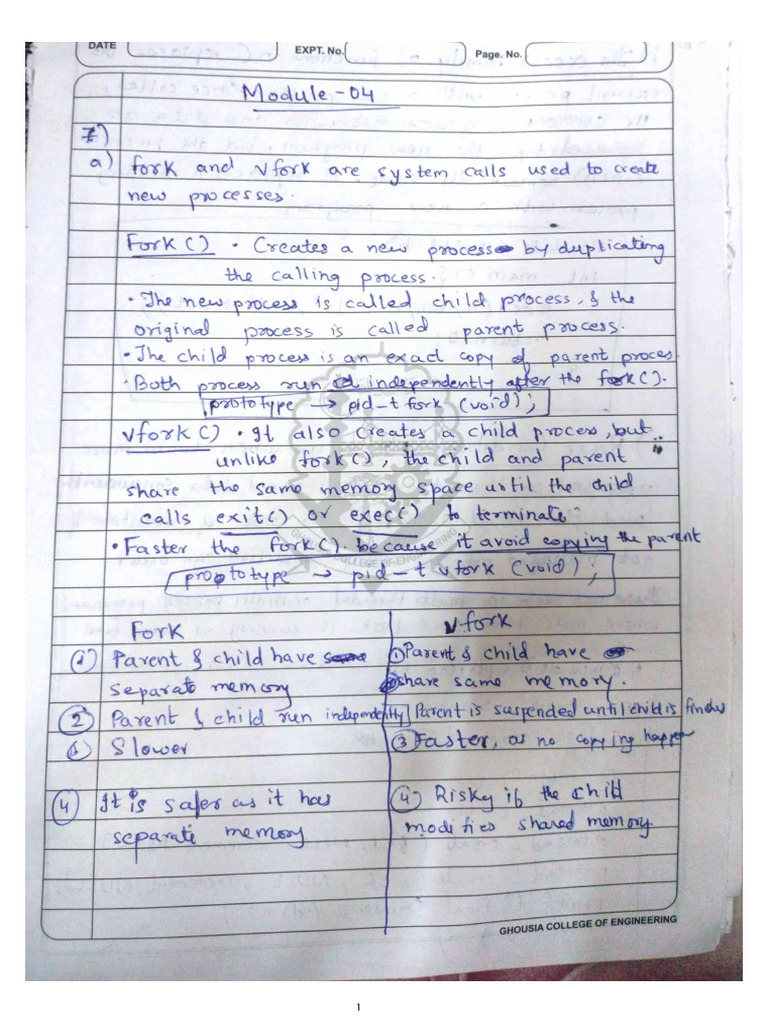 DATE
EXPT. No.
Page. No.
Module-04
7)
a) fork and vfork are system calls used to create
new processes.
Fork() • Creates a new process by duplicating
the calling process.
• The new process is called child process, & the
original process is called parent process.
• The child process is an exact copy of parent proces
• Both process run independently after the fork().
prototype → pid_t fork (void);
vfork() • It also creates a child process, but
unlike fork(), the child and parent
share the same memory space until the child
calls exit() or exec() to terminate
• Faster the fork() because it avoid copying the parent
prototype → pid_t vfork (void);
Fork
vfork
① Parent & child have
separate memory
① Parent & child have
share same memory.
② Parent & child run independently
Parent is suspended until child is finishes
Slower
③ Faster, as no copying happen
④ It is safer as it has
separate memory
④ Risky if the child
modifies shared memory.
GHOUSIA COLLEGE OF ENGINEERING
1